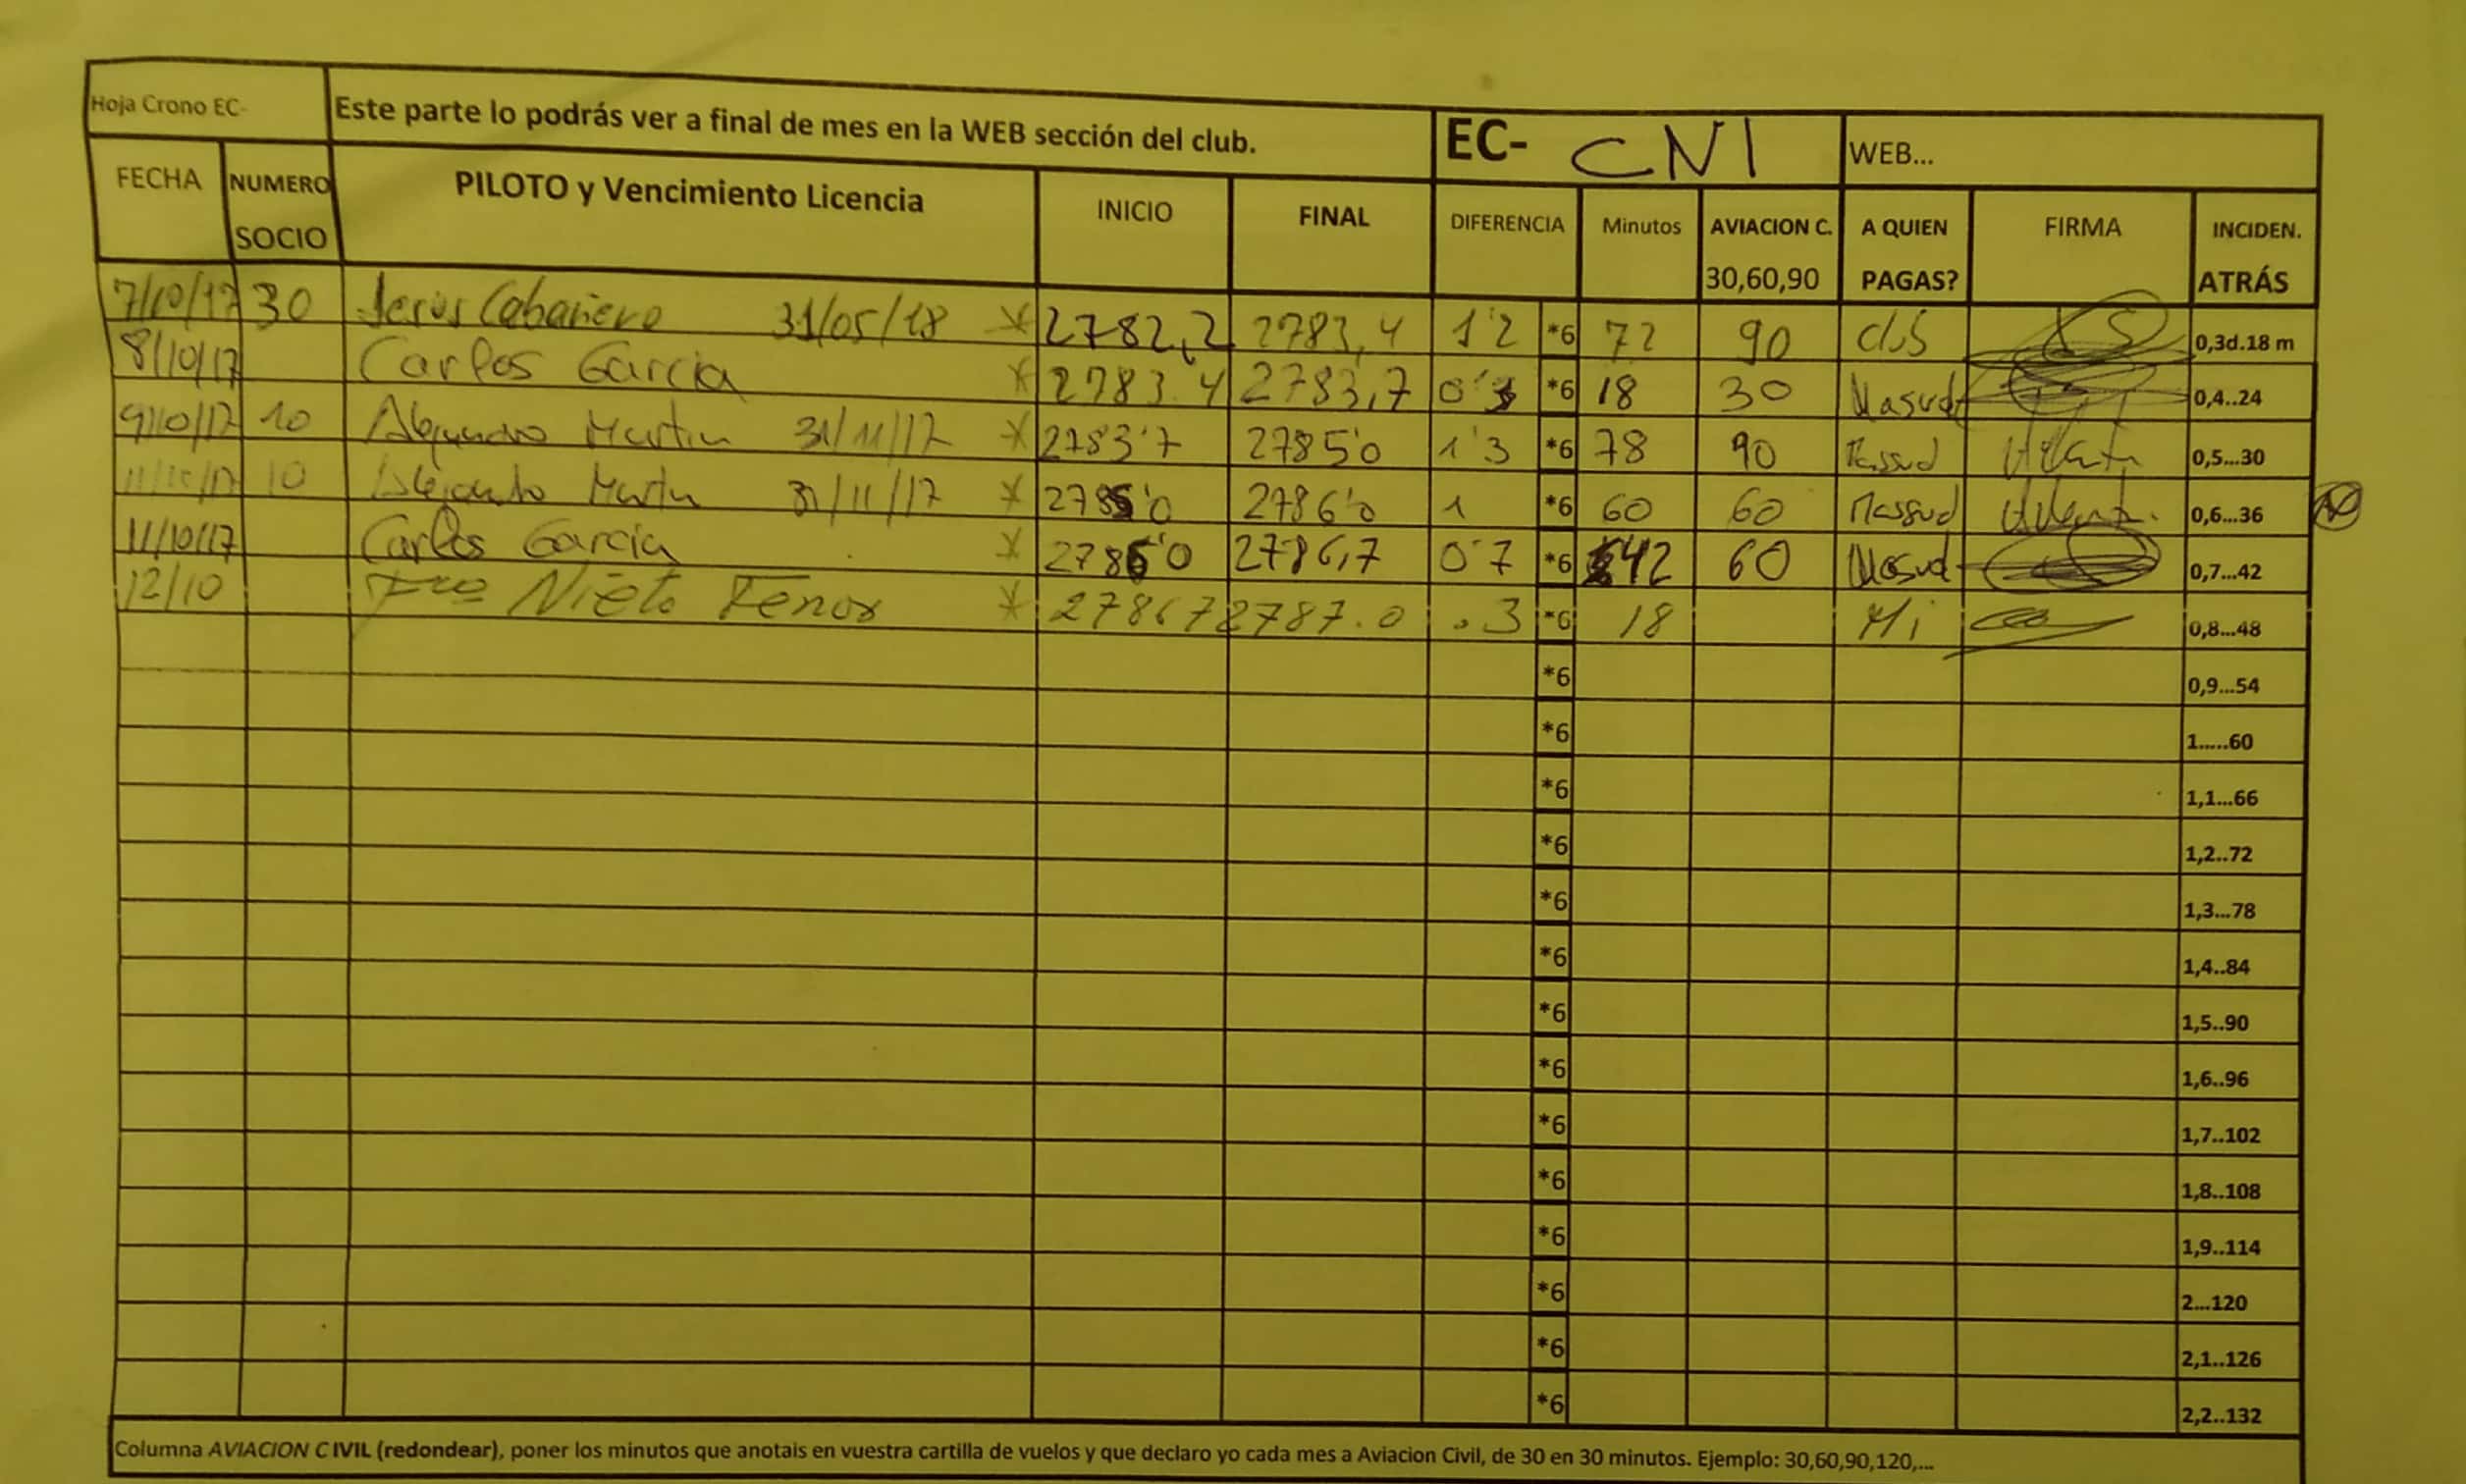 Hoja Crono EC- Este parte lo podrás ver a final de mes en la WEB sección del club. EC- CNI WEB...
FECHA NUMERO SOCIO PILOTO y Vencimiento Licencia INICIO FINAL DIFERENCIA Minutos AVIACION C. 30,60,90 A QUIEN PAGAS? FIRMA INCIDEN. ATRÁS
7/10/17 30 Jesús Cabañero 31/05/18 * 2782,2 2783,4 1'2 *6 72 90 0,3d.18 m
8/10/17 Carlos García * 2783.4 2783,7 0'3 *6 18 30 Masud 0,4..24
9/10/17 10 Alejandro Martin 31/11/17 * 2783'7 2785'0 1'3 *6 78 90 Massud 0,5...30
11/10/17 10 Alejandro Martin 31/11/17 * 2785'0 2786'0 1 *6 60 60 Massud 0,6...36
11/10/17 Carlos García * 2786'0 2786,7 0'7 *6 42 60 Masud 0,7...42
12/10 Fco Nieto Tenor * 27867 2787.0 .3 *6 18 Mi 0,8...48
*6 0,9...54
*6 1.....60
*6 1,1...66
*6 1,2..72
*6 1,3...78
*6 1,4..84
*6 1,5..90
*6 1,6..96
*6 1,7..102
*6 1,8..108
*6 1,9..114
*6 2...120
*6 2,1..126
*6 2,2..132
Columna AVIACION CIVIL (redondear), poner los minutos que anotais en vuestra cartilla de vuelos y que declaro yo cada mes a Aviacion Civil, de 30 en 30 minutos. Ejemplo: 30,60,90,120,...